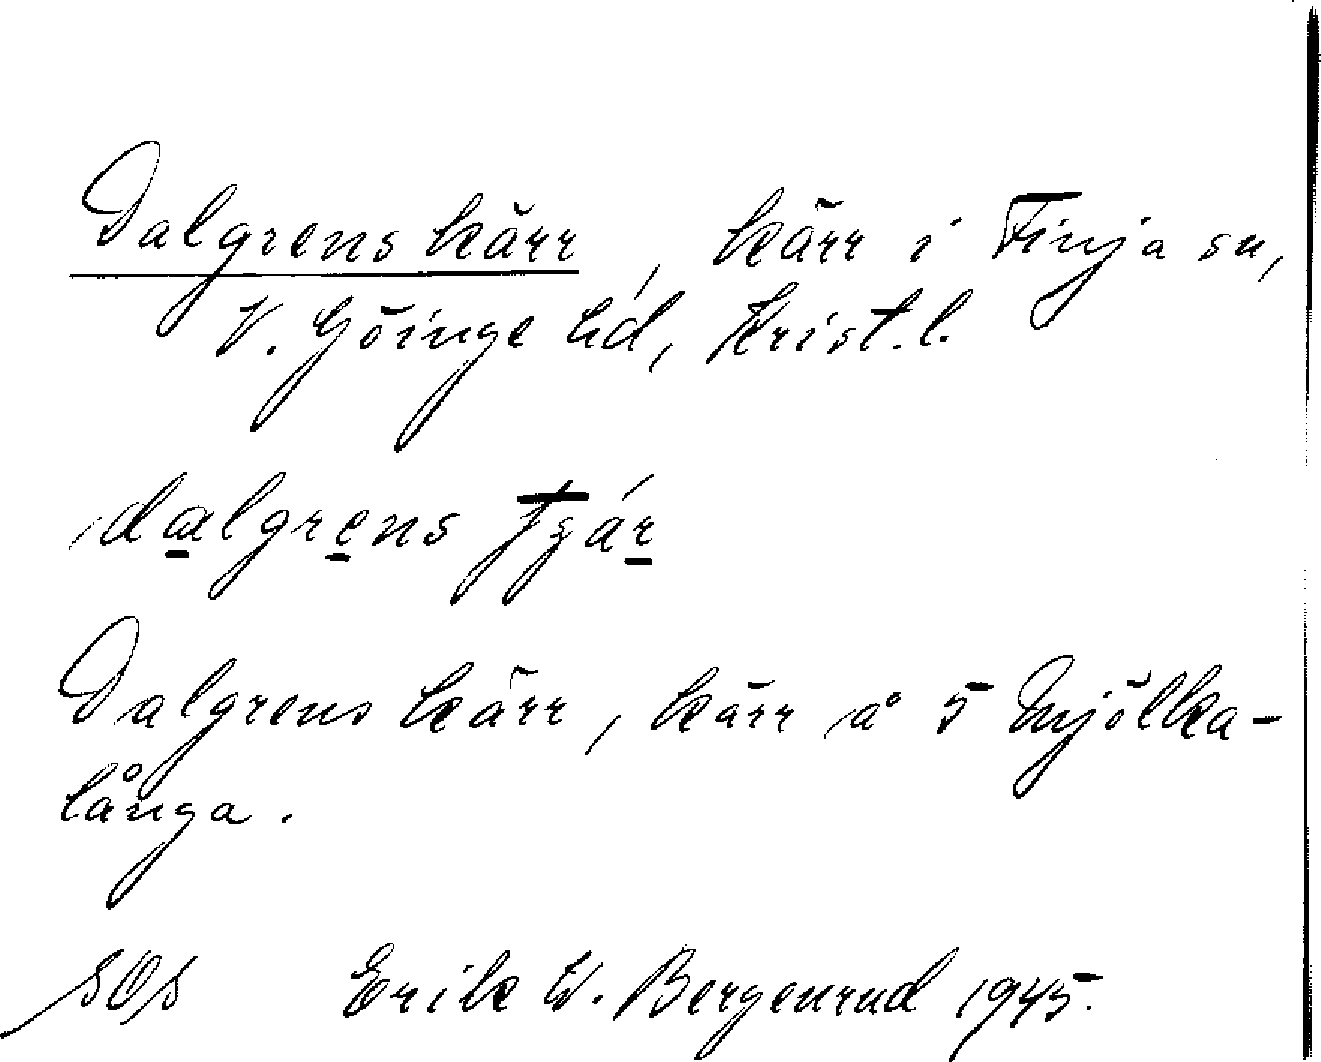 Dalgrens kärr, kärr i Finja sn,
V. Göinge hd, Krist. l.
dalgrens
Dalgrens kärr, kärr å 5 Mjölka-
långa.
SOS Erik W. Bergenrud 1945.